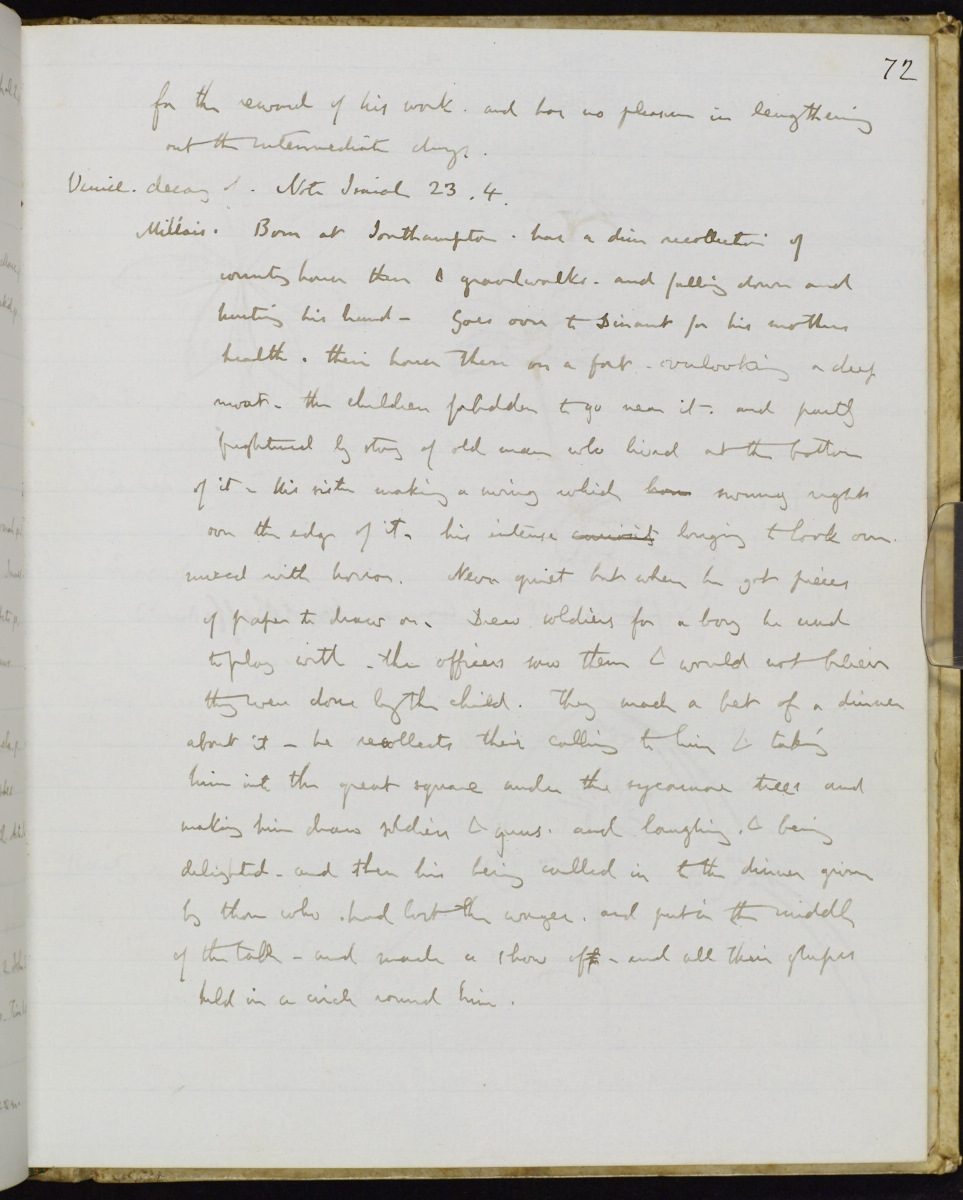 72
for the reward of his work. and has no pleasure in lengthening
out the intermediate days.
Venice. decay of. Note Isaiah 23. 4.
Millais. Born at Southampton. has a dim recollection of
country house there & gravel walks. and falling down and
hurting his head - Goes over to Dinant for his mothers
health. their house there on a fort. overlooking a deep
moat - the children forbidden to go near it. and partly
frightened by story of old man who lived at the bottom
of it - his sister making a swing which swung right
over the edge of it. his intense curiosity longing to look over.
mixed with horror. Never quiet but when he got pieces
of paper to draw on. Drew soldiers for a boy he used
to play with - the officers saw them & would not believe
they were done by the child. They made a bet of a dinner
about it - he recollects their calling to him & taking
him into the great square under the sycamore trees and
making him draw soldiers & guns. and laughing. & being
delighted - and then his being called in to the dinner given
by those who had lost the wager. and put in the middle
of the table - and made a show of - and all their glasses
held in a circle round him.